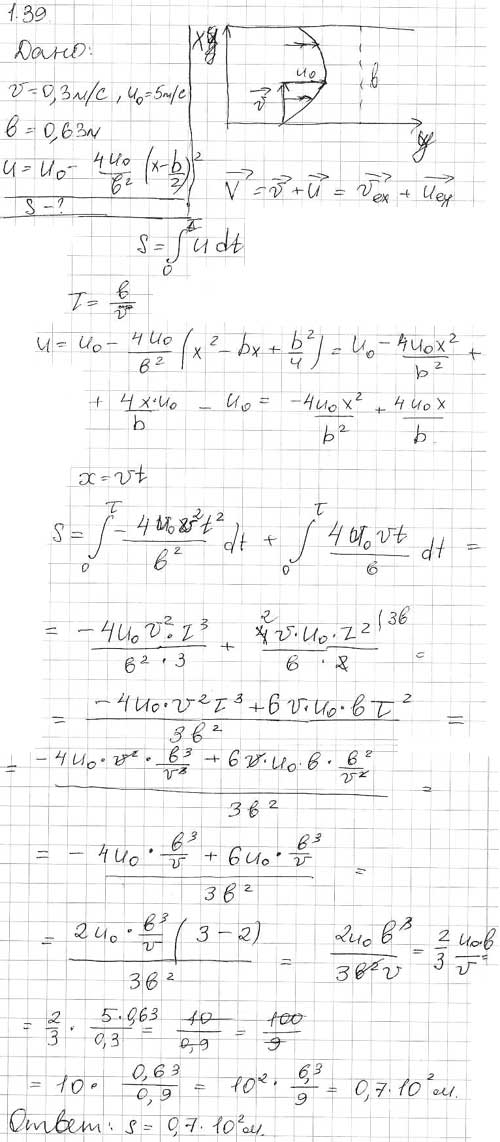 1.39
Дано:
v = 0,3 м/с, u₀ = 5 м/с
в = 0,63 м
u = u₀ - 4u₀/в² (x - b/2)²
S - ?
x
y
u₀
v⃗
в
V⃗ = v⃗ + u⃗ = v⃗ex + u⃗ex
S = ∫₀^τ u dt
τ = в/v
u = u₀ - 4u₀/в² (x² - bx + b²/4) = u₀ - 4u₀x²/b² +
+ 4x·u₀/b - u₀ = -4u₀x²/b² + 4u₀x/b
x = vt
S = ∫₀^τ -4u₀v²t²/в² dt + ∫₀^τ 4u₀vt/в dt =
= -4u₀v²·τ³/в²·3 + 4v·u₀·τ²/в·2 =
= -4u₀·v²τ³ + 6v·u₀·вτ²/3в² =
= -4u₀·v²·в³/v³ + 6v·u₀·в·в²/v²/3в² =
= -4u₀·в³/v + 6u₀·в³/v/3в² =
= 2u₀·в³/v (3-2)/3в² = 2u₀в³/3в²v = 2/3 u₀в/v =
= 2/3 · 5·0,63/0,3 = 10/0,9 = 100/9
= 10 · 0,63/0,9 = 10² · 6,3/9 = 0,7·10² м.
Ответ: s = 0,7·10² м.